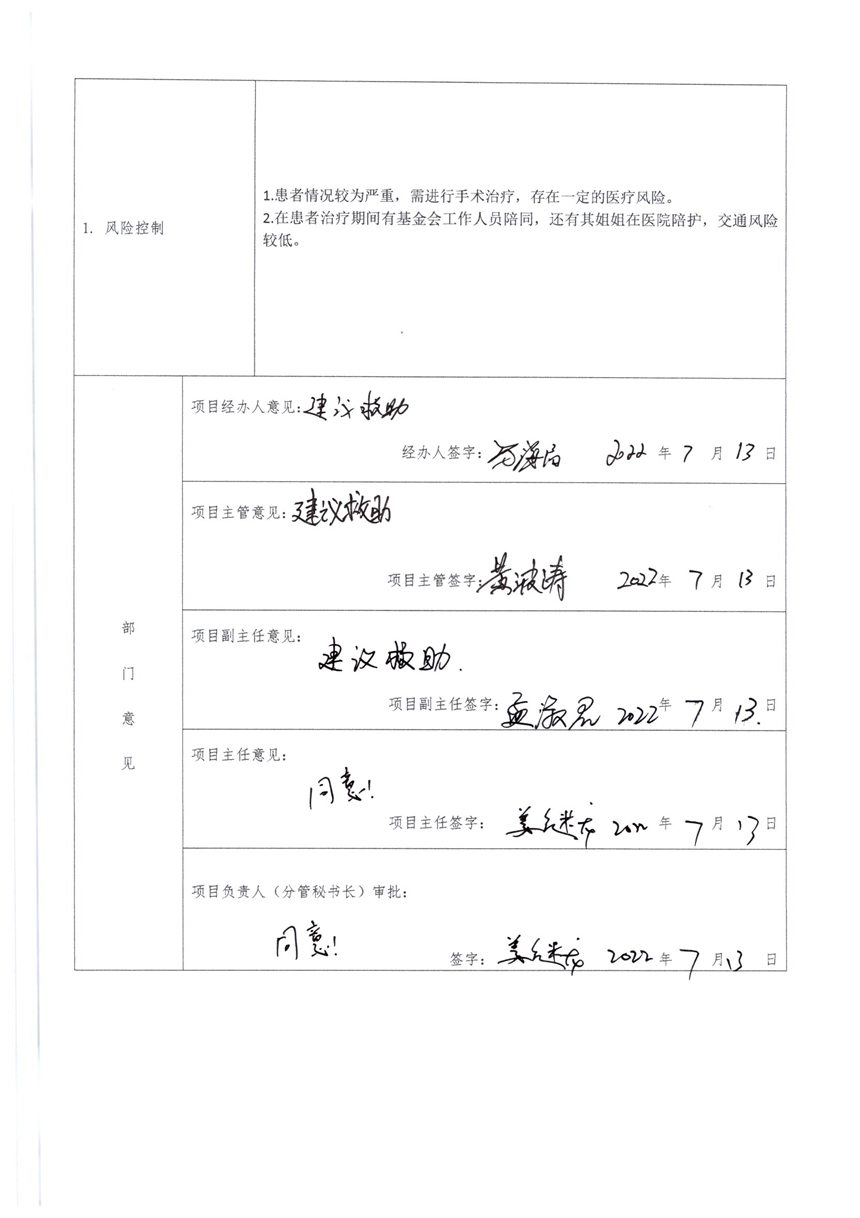 1. 风险控制
1.患者情况较为严重，需进行手术治疗，存在一定的医疗风险。
2.在患者治疗期间有基金会工作人员陪同，还有其姐姐在医院陪护，交通风险
较低。
部门意见
项目经办人意见:建议救助
经办人签字: 2022 年 7 月 13 日
项目主管意见:建议救助
项目主管签字:黄波涛 2022年 7 月 13 日
项目副主任意见:
建议救助.
项目副主任签字: 2022年 7 月 13. 日
项目主任意见:
同意!
项目主任签字: 姜继龙 2022 年 7 月 13 日
项目负责人（分管秘书长）审批:
同意!
签字: 姜继龙 2022 年 7 月 13 日